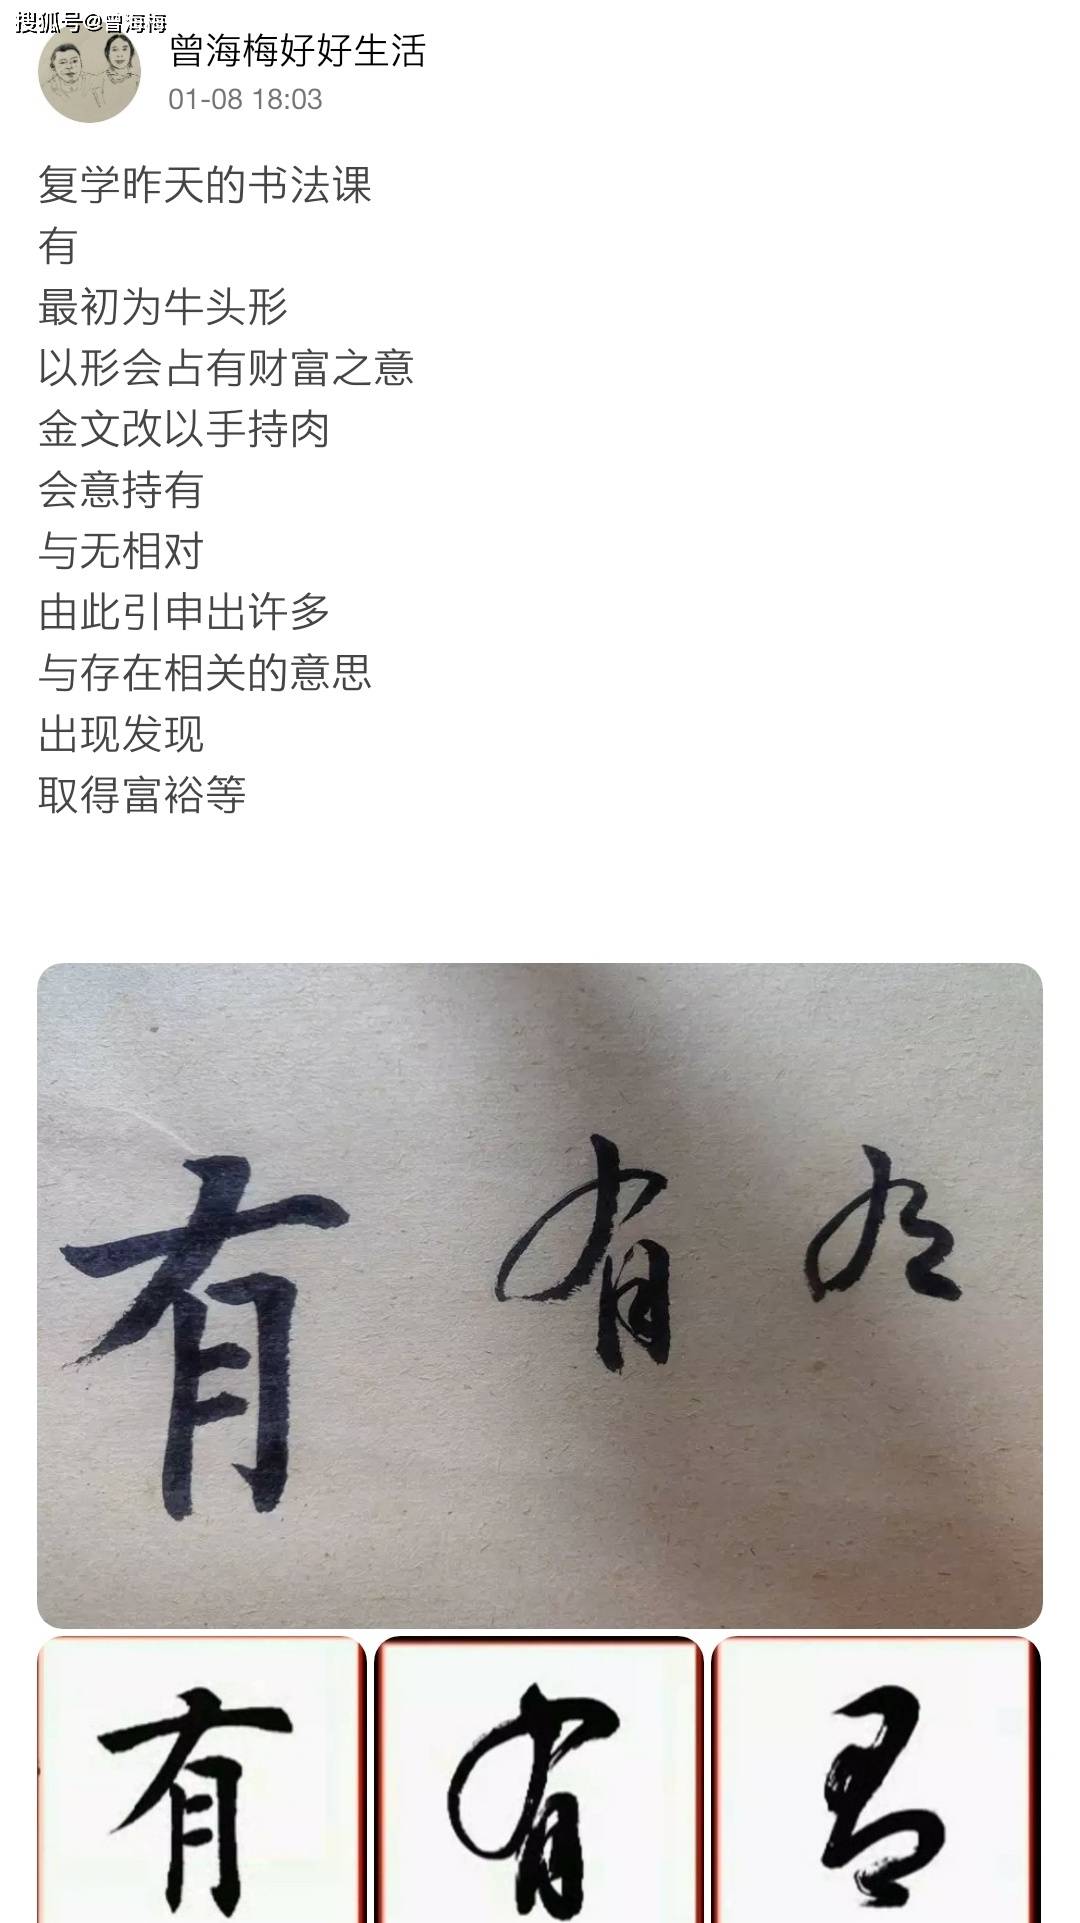 搜狐号@曾海梅
曾海梅好好生活
01-08 18:03
复学昨天的书法课
有
最初为牛头形
以形会占有财富之意
金文改以手持肉
会意持有
与无相对
由此引申出许多
与存在相关的意思
出现发现
取得富裕等
有 有 有
有 有 有